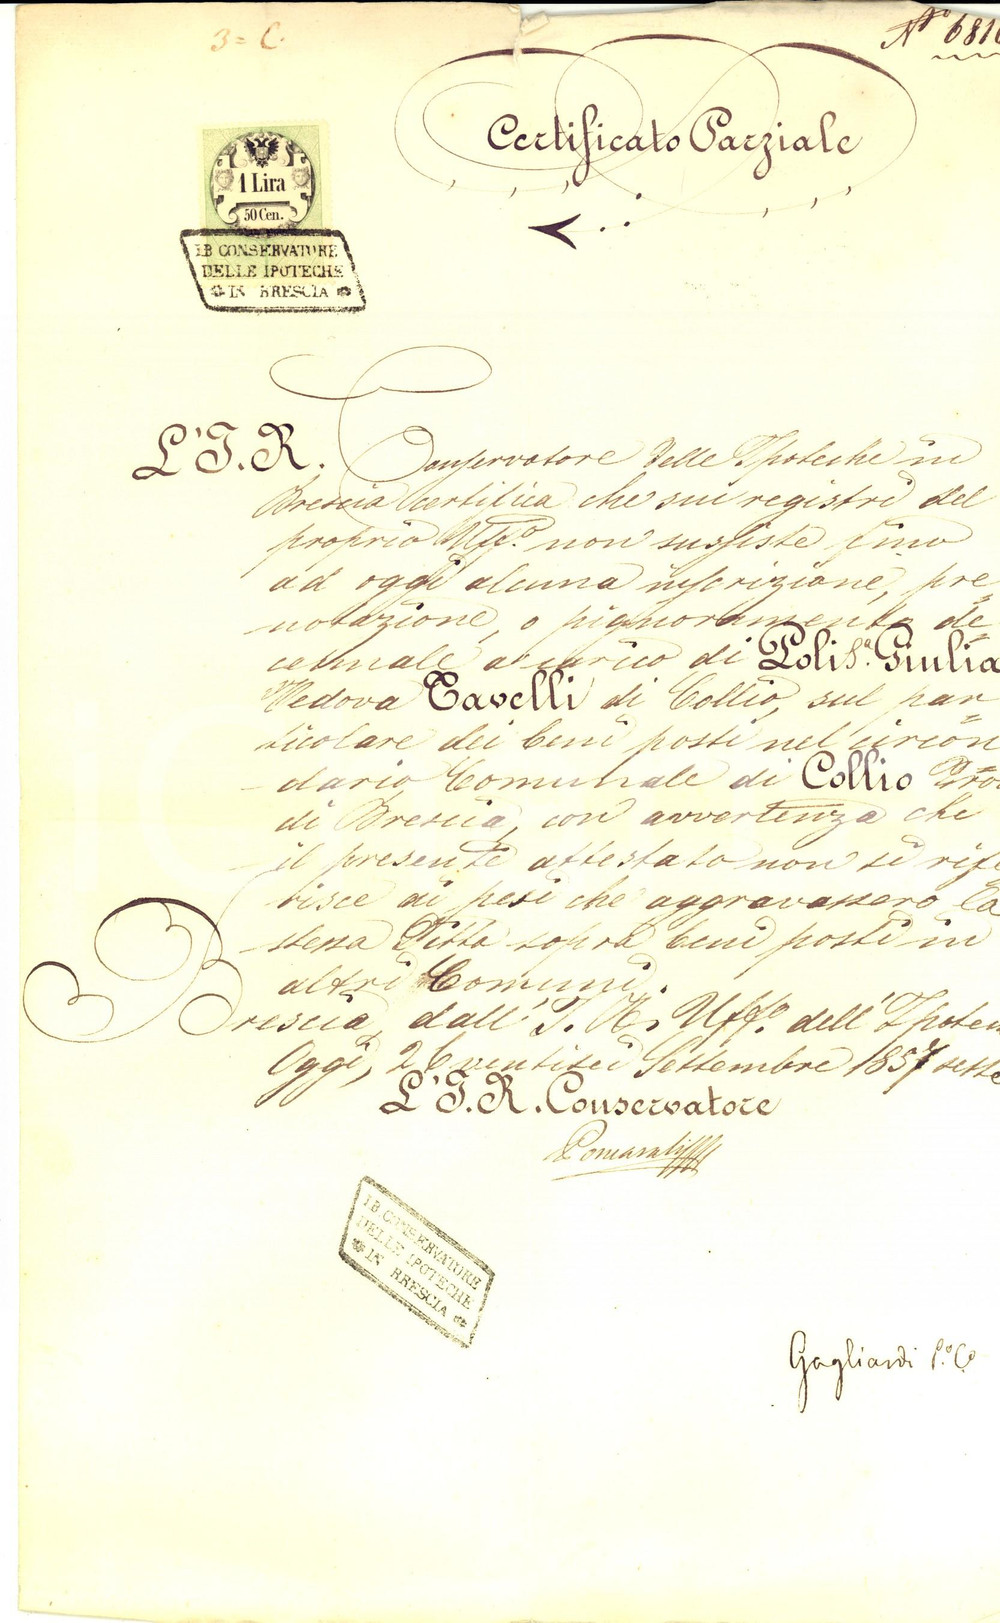 3= C.
No 6816
Certificato Parziale
1 Lira
50 Cen.
I.B CONSERVATORE
DELLE IPOTECHE
IN BRESCIA
L'I. R. Conservatore delle Ipoteche in
Brescia certifica che sui registri del
proprio Uffo. non sussiste fino
ad oggi alcuna inscrizione, pre=
notazione, o pignoramento de=
cennale a carico di Poli Sa. Giulia
Vedova Tavelli di Collio, sul par=
ticolare dei beni posti nel circon
dario Comunale di Collio Prov
di Brescia, con avvertenza che
il presente attestato non si rife
risce ai pesi che aggravassero la
stessa Ditta sopra beni posti in
altri Comuni.
Brescia, dall' I. R. Uffo. dell' Ipotec
Oggi, 26 ventisei Settembre 1857 sette
L'I. R. Conservatore
I.B CONSERVATORE
DELLE IPOTECHE
IN BRESCIA
Gagliardi